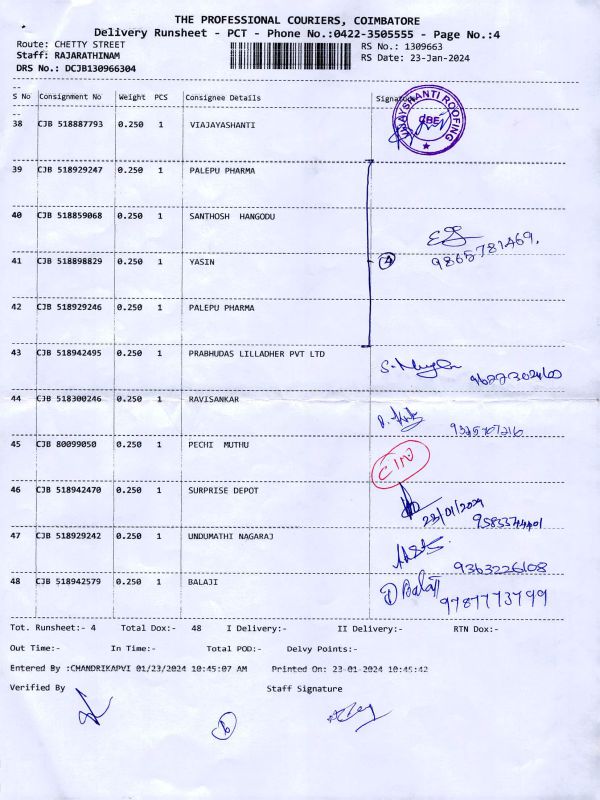 THE PROFESSIONAL COURIERS, COIMBATORE
Delivery Runsheet - PCT - Phone No.:0422-3505555 - Page No.:4
Route: CHETTY STREET RS No.: 1309663
Staff: RAJARATHINAM RS Date: 23-Jan-2024
DRS No.: DCJB130966304
S No Consignment No Weight PCS Consignee Details Signature
38 CJB 518887793 0.250 1 VIAJAYASHANTI
VIJAYSHANTI ROOFING CBE
39 CJB 518929247 0.250 1 PALEPU PHARMA
40 CJB 518859068 0.250 1 SANTHOSH HANGODU
41 CJB 518898829 0.250 1 YASIN 4 9865781469.
42 CJB 518929246 0.250 1 PALEPU PHARMA
43 CJB 518942495 0.250 1 PRABHUDAS LILLADHER PVT LTD
44 CJB 518300246 0.250 1 RAVISANKAR
45 CJB 80099050 0.250 1 PECHI MUTHU CIN
46 CJB 518942470 0.250 1 SURPRISE DEPOT
23/01/2024
47 CJB 518929242 0.250 1 UNDUMATHI NAGARAJ
9363226108
48 CJB 518942579 0.250 1 BALAJI D Balaji
9787773799
Tot. Runsheet:- 4 Total Dox:- 48 I Delivery:- II Delivery:- RTN Dox:-
Out Time:- In Time:- Total POD:- Delvy Points:-
Entered By :CHANDRIKAPVI 01/23/2024 10:45:07 AM Printed On: 23-01-2024 10:45:42
Verified By Staff Signature